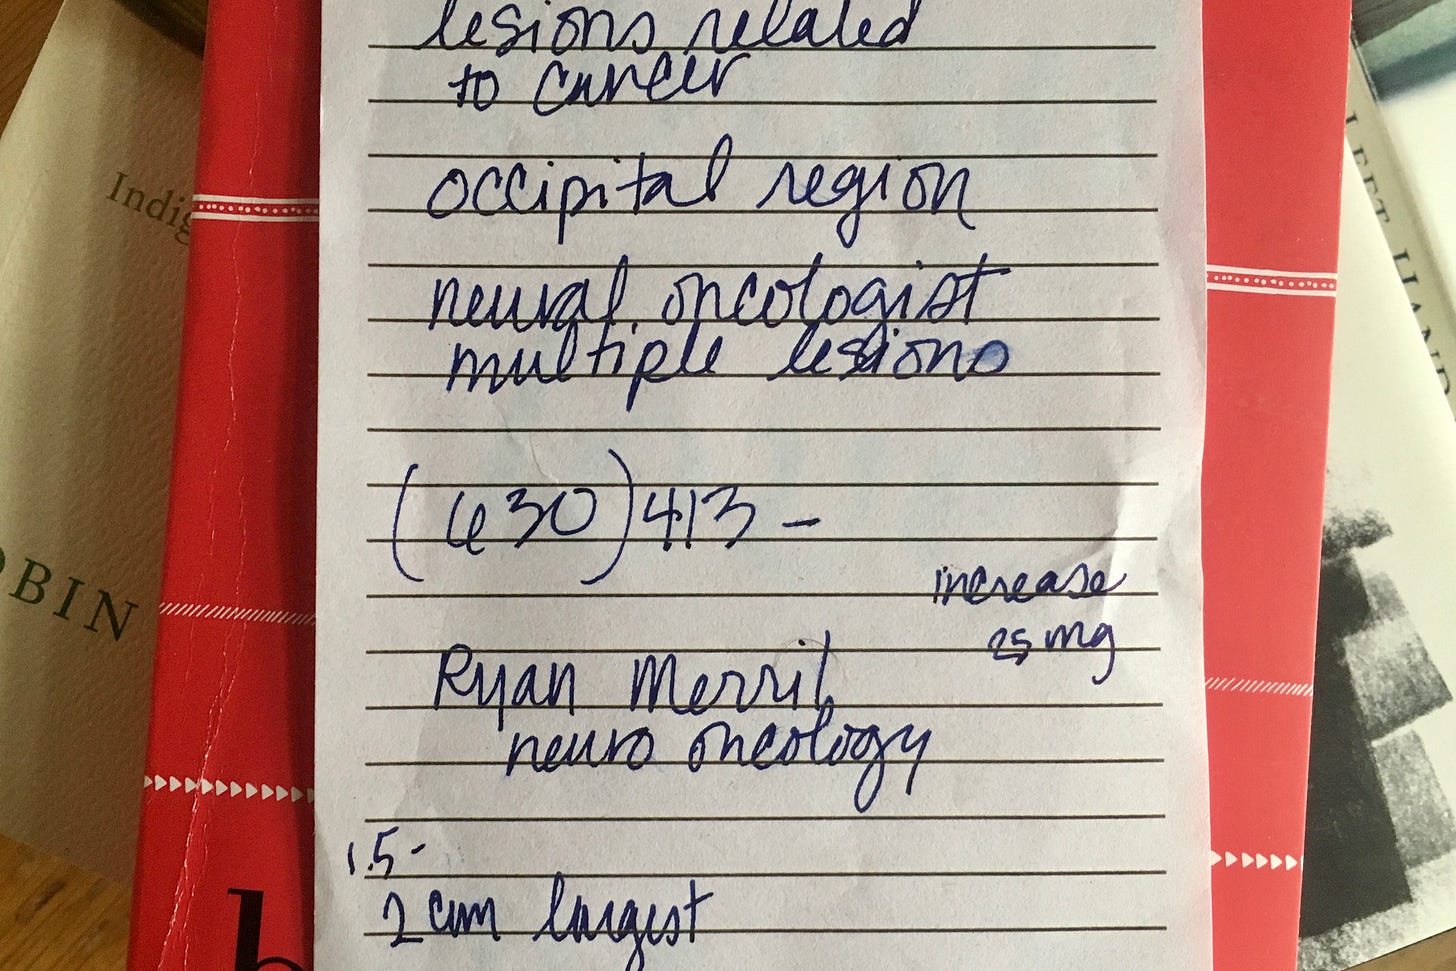 lesions related
to cancer
occipital region
neural oncologist
multiple lesions
(630) 413 -
increase
25 mg
Ryan Merril
neuro oncology
1.5 -
2 cm largest
Indig
OBIN
LEFT HAND
b